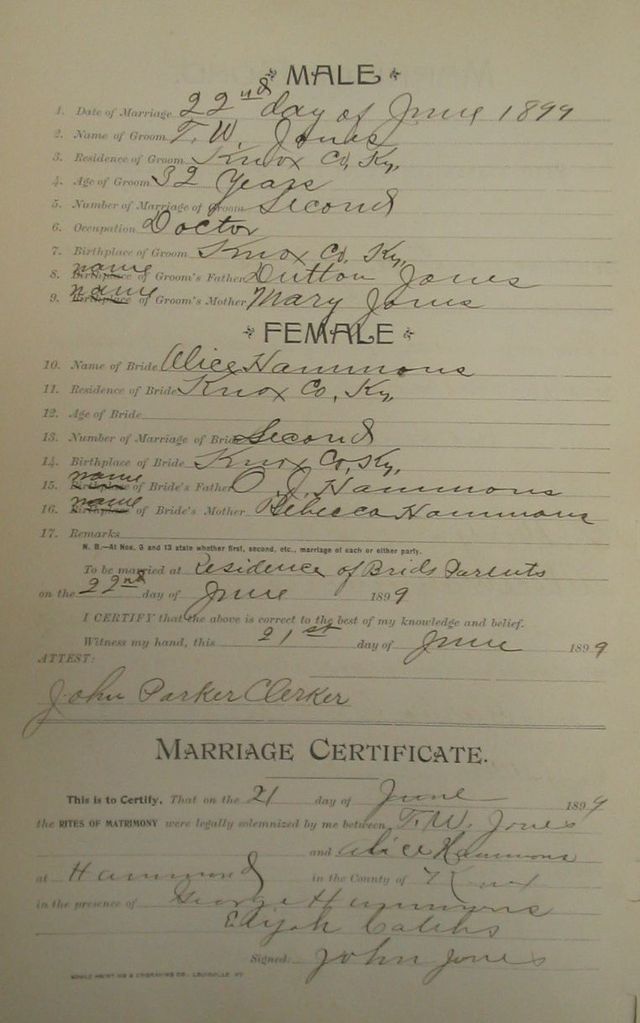 MALE
1. Date of Marriage 22nd day of June 1899
2. Name of Groom T. W. Jones
3. Residence of Groom Knox Co, Ky,
4. Age of Groom 32 Years
5. Number of Marriage of Groom Second
6. Occupation Doctor
7. Birthplace of Groom Knox Co, Ky,
name
8. Birthplace of Groom's Father Dutton Jones
name
9. Birthplace of Groom's Mother Mary Jones
FEMALE
10. Name of Bride Alice Hammons
11. Residence of Bride Knox Co, Ky,
12. Age of Bride
13. Number of Marriage of Bride Second
14. Birthplace of Bride Knox Co, Ky,
name
15. Birthplace of Bride's Father O. J. Hammons
name
16. Birthplace of Bride's Mother Rebecca Hammons
17. Remarks
N. B.—At Nos. 5 and 13 state whether first, second, etc., marriage of each or either party.
To be married at Residence of Brids Parents
on the 22nd day of June 1899
I CERTIFY that the above is correct to the best of my knowledge and belief.
Witness my hand, this 21st day of June 1899
ATTEST:
John Parker Clerker
MARRIAGE CERTIFICATE.
This is to Certify, That on the 21 day of June 1899
the RITES OF MATRIMONY were legally solemnized by me between T. W. Jones
and Alice Hammons
at Hammond in the County of Knox
in the presence of George Hammons
Elijah
Signed: John Jones